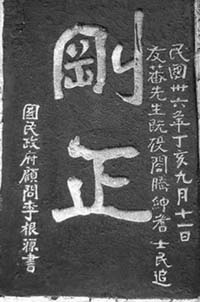 民國卅六年丁亥九月十一日
友蓀先生既歿閤騰紳耆士民追
剛正
國民政府顧問李根源書